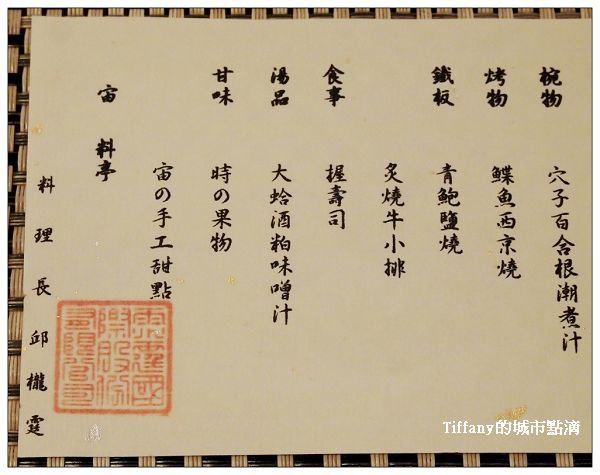 椀物
穴子百合根潮煮汁
烤物
鰈魚西京燒
鐵板
青鮑鹽燒
炙燒牛小排
食事
握壽司
湯品
大蛤酒粕味噌汁
甘味
時の果物
宙の手工甜點
宙 料亭
料理長 邱櫳霆
Tiffany的城市點滴